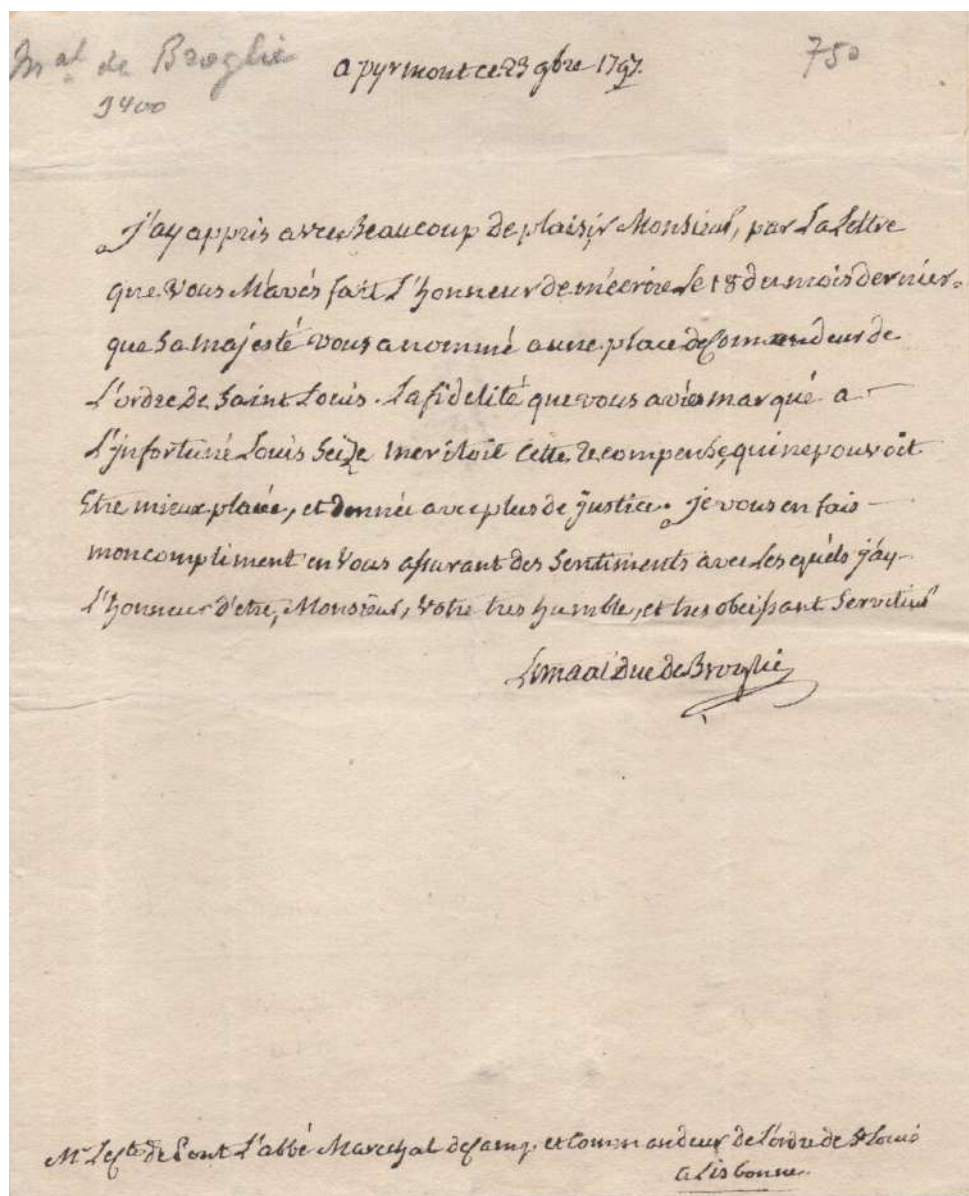 Mal. de Broglie
9400
750
a pyrmont ce 23 9bre 1797.
j'ay appris avec beaucoup de plaisir Monsieur, par La Lettre
que vous M'avés fait L'honneur de m'écrire Le 18 du mois dernier.
que Sa majesté vous a nommé a une place de Commandeur de
L'ordre de Saint Louis. La fidelité que vous aviés marqué a
L'jnfortuné Louis Seize meritoit cette recompense, qui ne pouvoit
Etre mieux placée, et donnée avec plus de justice. je vous en fais
mon compliment en vous assurant des Sentiments avec Lesquels j'ay
L'honneur d'etre, Monsieur, votre tres humble, et tres obeissant Serviteur
Le maal Duc de Broglie
Mr Le Cte de Pont L'abbé Marechal de Camp, et Commandeur de L'ordre de St Louis
a Lisbonne.